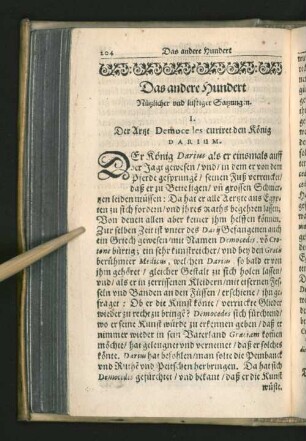 204 Das andere Hundert
Das andere Hundert
Nützlicher und lustiger Satzungen.
I.
Der Artzt Democedes curiret den König
DARIUM.
DEr König Darius als er einsmals auff
der Jagt gewesen / und / in dem er von dem
Pferde gesprungē / seinen Fuß verrenckt /
daß er zu Bette ligen / uñ grossen Schmer-
tzen leiden müssen : Da hat er alle Aertzte aus Egyp-
ten zu sich fordern / und ihres Raths begehren lassen,
Von denen allen aber keiner ihm helffen können.
Zur selben Zeit ist unter des Darij Gefangenen auch
ein Griech gewesen / mit Namen Democedes, võ Cro-
tone bürtig ; ein sehr kunstreicher / und bey den Grie-
berühmter Medicus, welchen Darius so bald er von
ihm gehöret / gleicher Gestalt zu sich holen lassen /
und / als er in zerrissenen Kleidern / mit eisernen Fes-
seln und Banden an den Füssen / erschiene / ihn ge-
fraget : Ob er die Kunst könte / verruckte Glieder
wieder zu recht zu bringē? Democedes sich fürchtend /
wo er seine Kunst würde zu erkennen geben / daß er
nimmer wieder in sein Vaterland Græciam kommen
möchte / hat gelengnet und verneinet / daß er solches
könte. Darius hat befohlen / man solte die Peinbanck
und Ruthē und Peitschen herbringen. Da hat sich
Democedes gefürchtet / und bekant / daß er die Kunst
wüste.